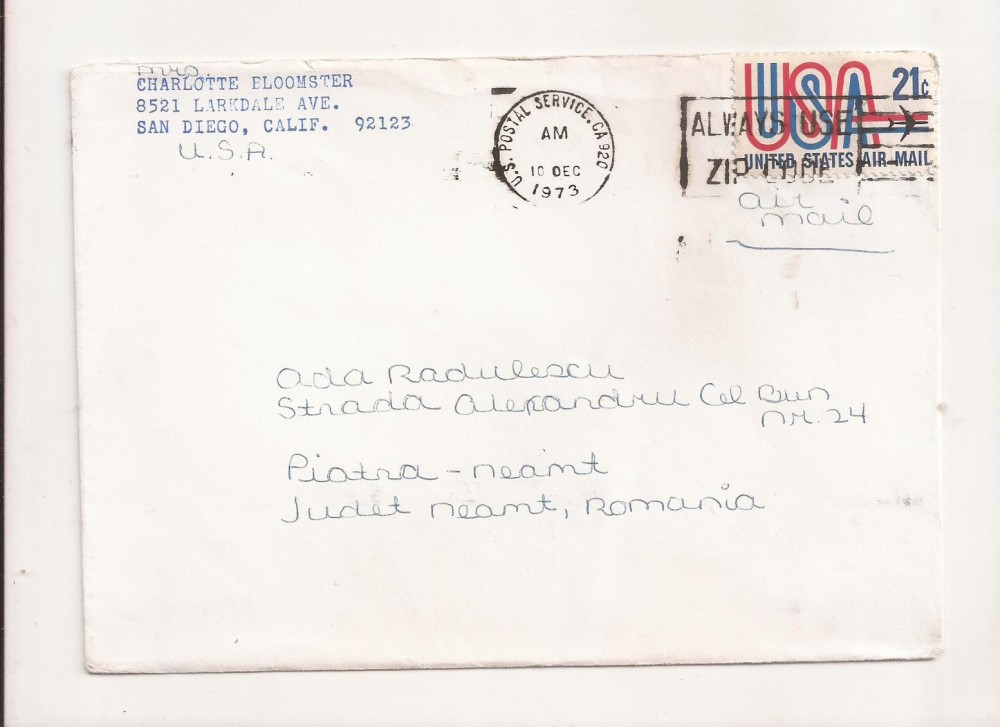 Mrs
CHARLOTTE BLOOMSTER
8521 LARKDALE AVE.
SAN DIEGO, CALIF. 92123
U.S.A.
U.S. POSTAL SERVICE, CA 920
AM
10 DEC
1973
ALWAYS USE
ZIP CODE
USA 21c
UNITED STATES AIR MAIL
air
mail
Ada Radulescu
Strada Alexandru Cel Bun
nr. 24
Piatra - neamt
Judet neamt, Romania